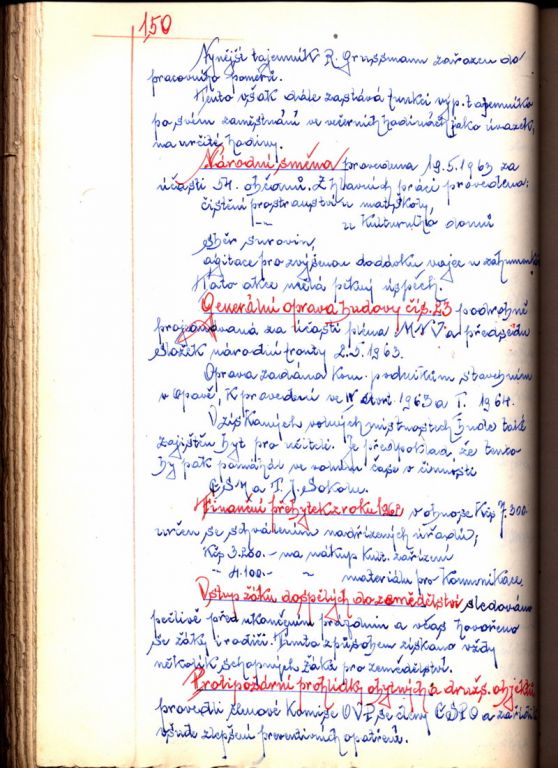 150
Nynější tajemník R. Grussmann zařazen do
pracovního poměru.
Tento však dále zastává funkci výp. tajemníka
po svém zaměstnání ve večerních hodinách jako úvazek,
na určité hodiny.
Národní směna provedena 19.5.1963 za
účasti 54. občanů. Z hlavních prací provedena:
čištění prostranství u mat. školy,
-"- u Kulturního domu
sběr surovin,
agitace pro zvýšenou dodávku vajec u záhumen
Tato akce měla pěkný úspěch.
Generální oprava budovy čís. 23 podrobně
za účasti pléna M.N.V. a předsedů
složek národní fronty 2.5.1963.
Oprava zadána Kom. podnikům stavebním
v Opavě, k provedení ve IV. čtvrt. 1963 a I. 1964.
V získaných volných místnostech bude také
zajištěn byt pro učitele. Je předpoklad, že tento
by pak pomáhal ve volném čase v činnosti
ČSM a T.J. Sokolu.
Finanční přebytek z roku 1962 v obnose Kčs 7.300.
určen se schválením nadřízených úřadů;
Kčs 3.200.- na nákup Kult. zařízení
-"- 4.100.- -"- materiálu pro Komunikace.
Vstup žáků dospělých do zemědělství sledováno
pečlivě před ukončením prázdnin a včas hovořeno
se žáky i rodiči. Tímto způsobem získáno vždy
několik schopných žáků pro zemědělství.
Protipožární prohlídky obytných a družs. objektů
provedli členové Komise OVP se členy ČSPO a zařídili
všude zlepšení preventivních opatření.